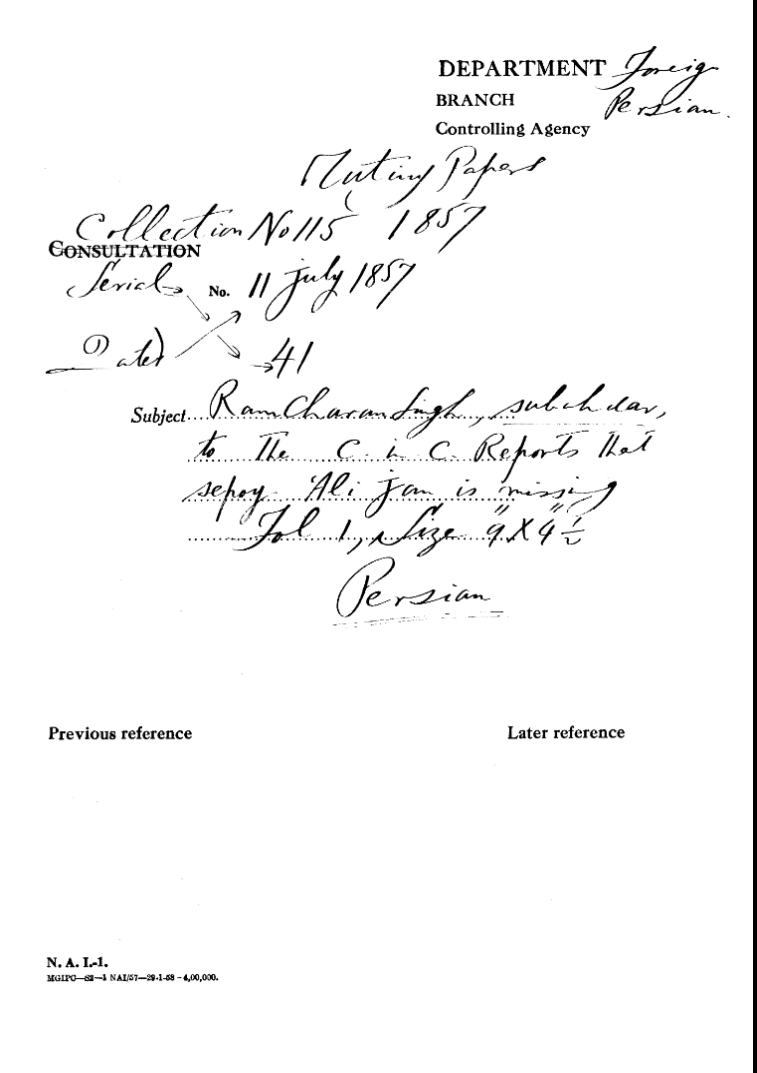 DEPARTMENT Foreign
BRANCH Persian.
Controlling Agency
Mutiny Papers
Collection No 115 1857
CONSULTATION
Serial No. 11 July 1857
Dated 41
Subject Ram Charan Singh, subahdar,
to The C. in C. Reports that
sepoy 'Ali Jan is missing
Fol 1, Size 9" X 4" 1/2
Persian
Previous reference Later reference
N. A. I.-1.
MGIPC—S2—1 NAI/57—29-1-58—4,00,000.